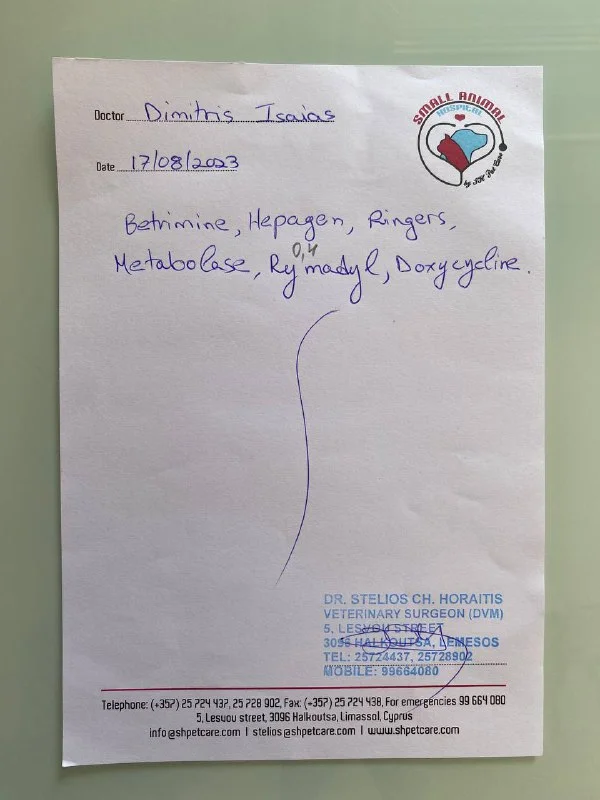 SMALL ANIMAL
HOSPITAL
by SH Pet Care
Doctor Dimitris Isaias
Date 17/08/2023
Betrimine, Hepagen, Ringers,
0,4
Metabolase, Rymadyl, Doxycycline.
DR. STELIOS CH. HORAITIS
VETERINARY SURGEON (DVM)
5, LESVOU STREET
3096 HALKOUTSA, LEMESOS
TEL: 25724437, 25728902
MOBILE: 99664080
Telephone: (+357) 25 724 437, 25 728 902, Fax: (+357) 25 724 438, For emergencies 99 664 080
5, Lesvou street, 3096 Halkoutsa, Limassol, Cyprus
info@shpetcare.com | stelios@shpetcare.com | www.shpetcare.com